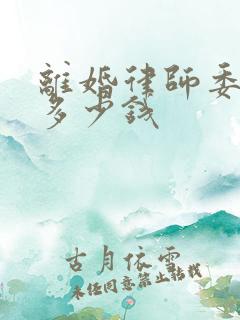 離婚律師委
多少錢
古月依雲
未經同意禁止轉載